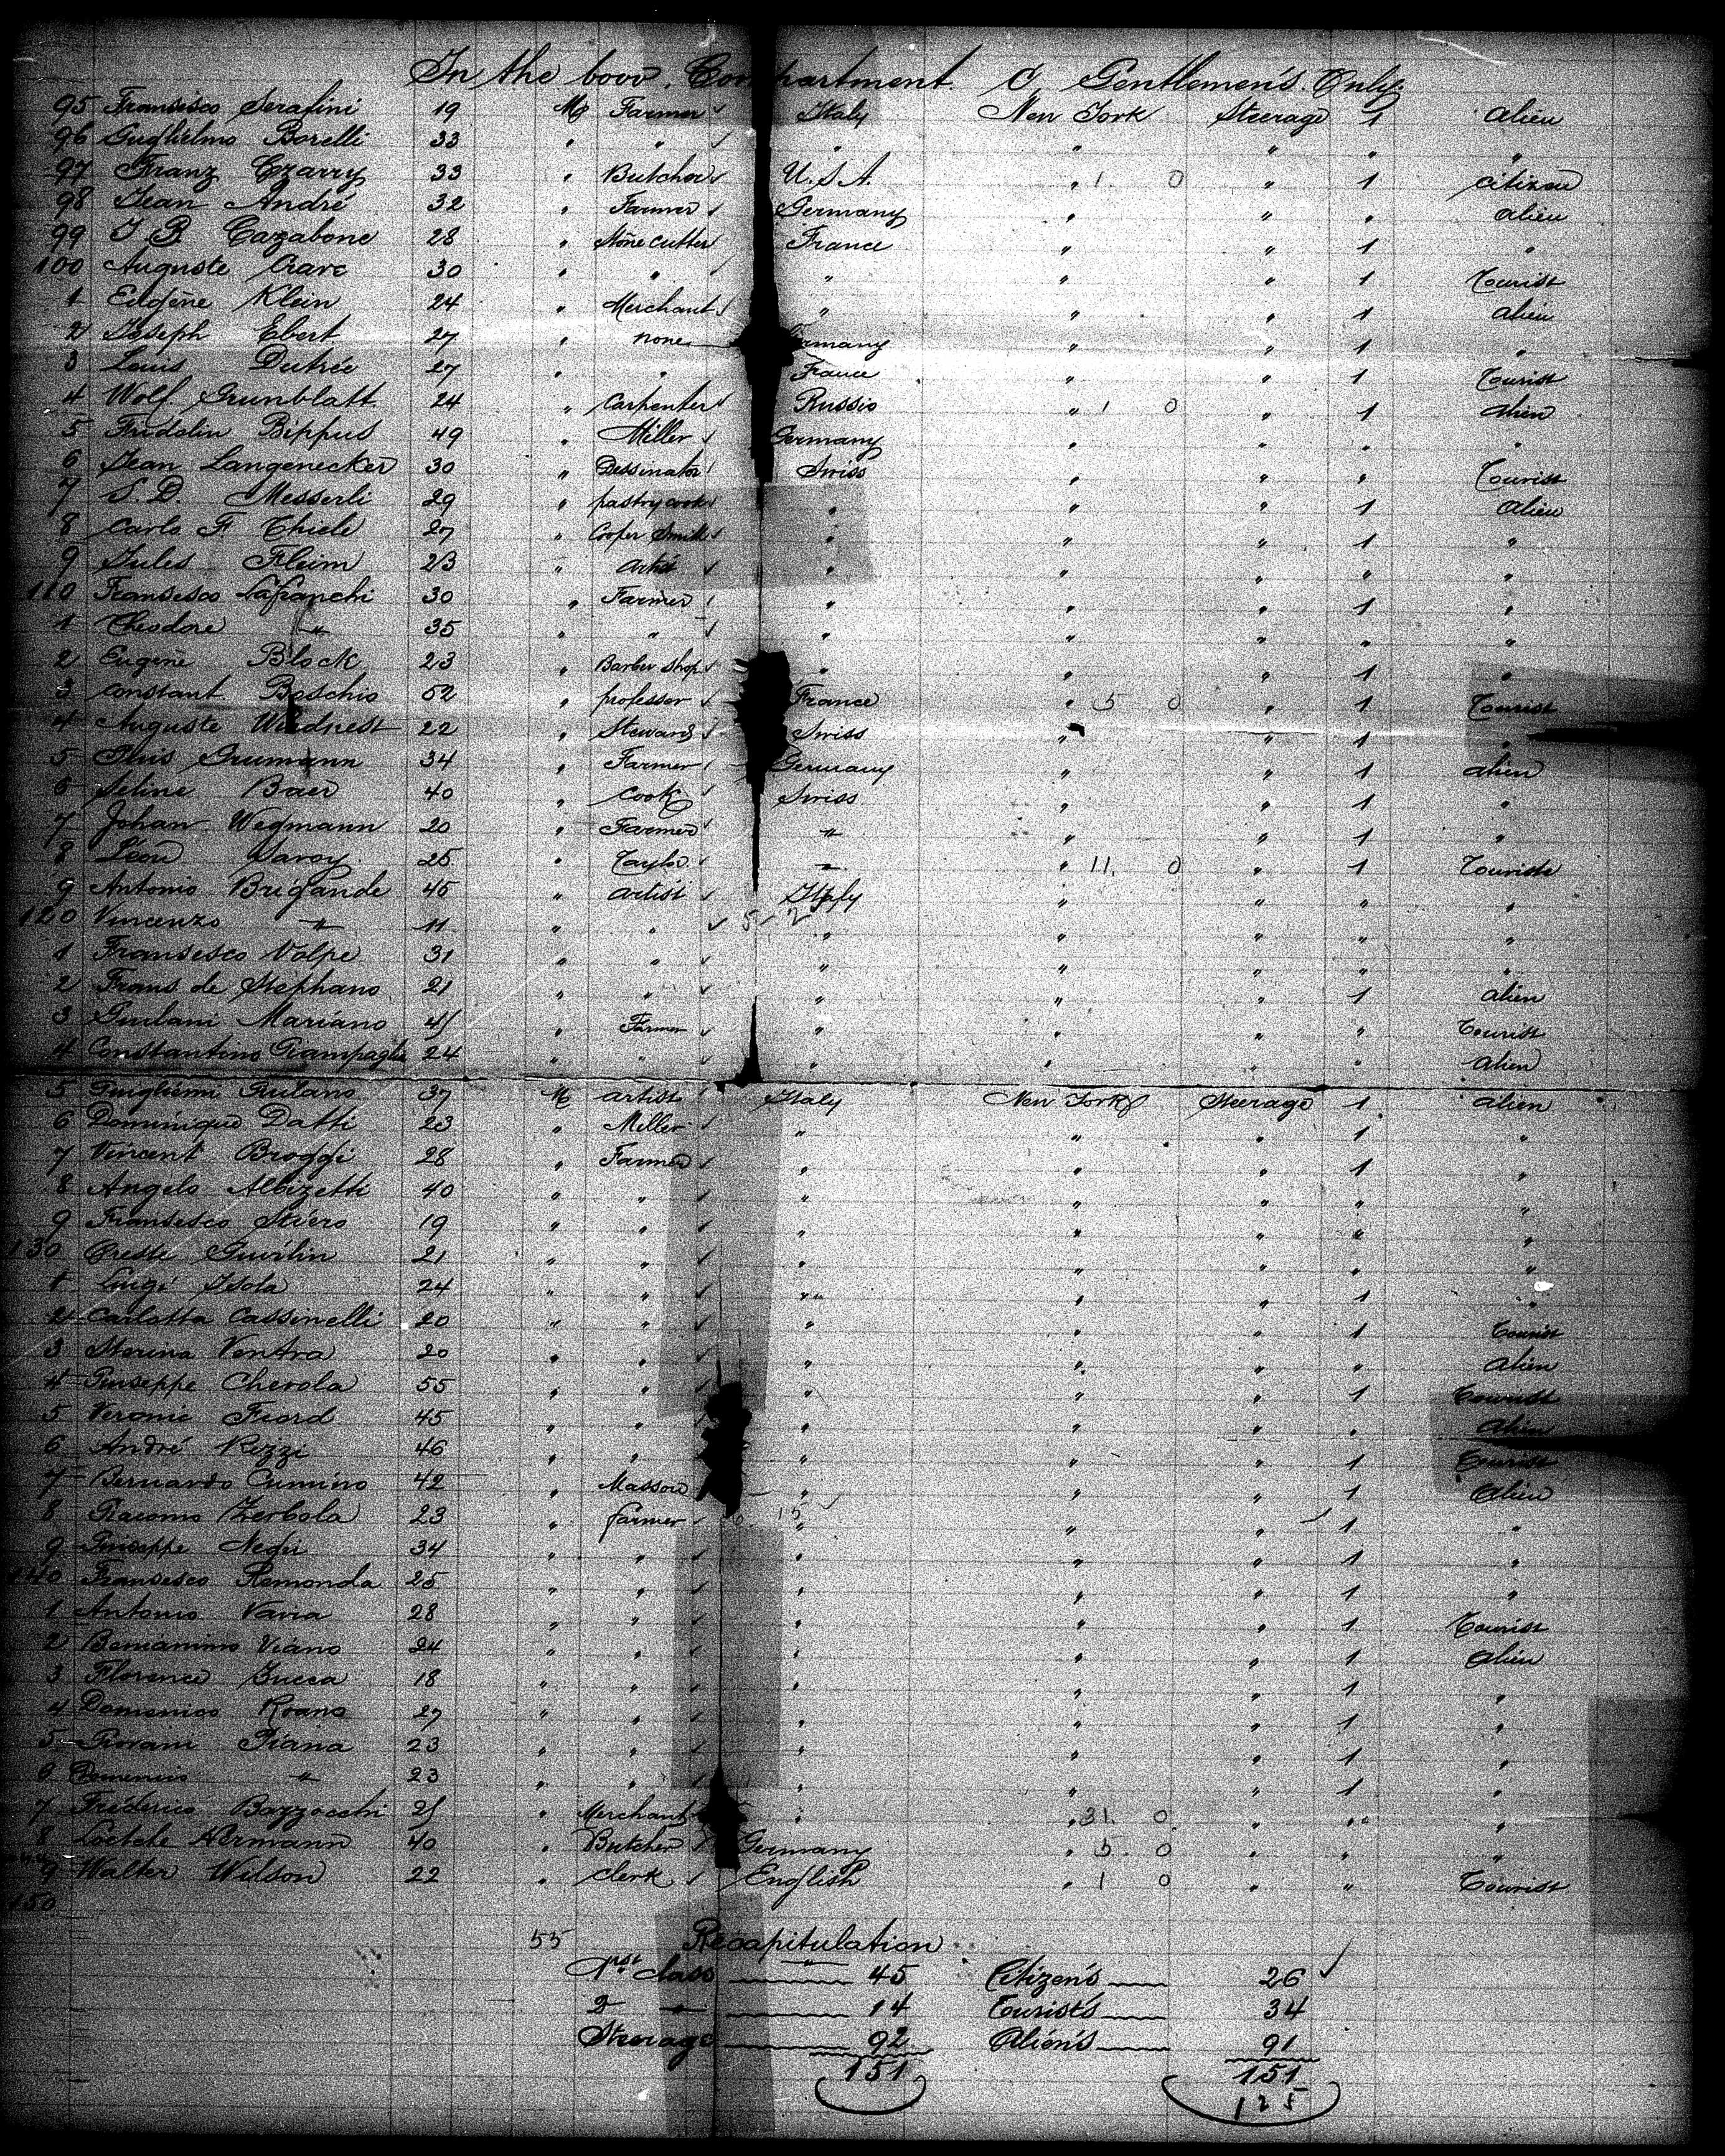 In the bow. Compartment C, Gentlemen's Only.
95 Fransisco Serafini 19 Mg Farmer ✓ Italy New York Steerage 1 alien
96 Guglielmo Borelli 33 " " ✓ " " " " "
97 Franz Czarry 33 " Butcher ✓ U.S.A. " 1. 0 " 1 citizen
98 Jean André 32 " Farmer ✓ Germany " " " alien
99 J B Cazabone 28 " Stone cutter France " " 1 "
100 Auguste 30 " " ✓ " " " 1 Tourist
1 Eugène Klein 24 " Merchant ✓ " " " 1 alien
2 Joseph Ebert 27 " none Germany " " 1 "
3 Louis Dutrée 27 " " France " " 1 Tourist
4 Wolf Grunblatt 24 " Carpenter Russia " 1 0 " 1 alien
5 Fridolin Bippus 49 " Miller ✓ Germany " " " "
6 Jean Langenecker 30 " Dessinator Swiss " " " Tourist
7 S. D. Messerli 29 " pastry cook " " " 1 alien
8 Carlo F Thiele 27 " Cooper Smith ✓ " " " 1 "
9 Jules Fleim 23 " ✓ " " " " "
110 Fransesco Lafranchi 30 " Farmer " " " 1 "
1 Théodore " 35 " " ✓ " " " " "
2 Eugène Block 23 " Barber shop ✓ " " " 1 "
3 Constant Boschio 52 " professor ✓ France " 5 0 " 1 Tourist
4 Auguste 22 " Steward Swiss " " 1 "
5 Grumann 34 " Farmer Germany " " 1 alien
6 Seline Baer 40 " Cook ✓ Swiss " " 1 "
7 Johan Wegmann 20 " Farmer ✓ " " " 1 "
8 Léon Savoy 25 " Taylor ✓ " " 11. 0 " 1 Tourist
9 Antonio Brigande 45 " artist ✓ Italy " " " "
120 Vincenzo " 11 " " ✓ " " " " "
1 Fransesco Volpe 31 " " ✓ " " " " "
2 Frans de Stéphano 21 " " ✓ " " " 1 alien
3 Giuliani Mariano 45 " Farmer ✓ " " " " Tourist
4 Constantino Giampaglia 24 " " ✓ " " " " alien
5 Guglielmi Giuliano 37 M artist Italy New York Steerage 1 alien
6 Dominique Datti 23 " Miller ✓ " " " 1 "
7 Vincent Broggi 28 " Farmer ✓ " " " 1 "
8 Angelo Albizetti 40 " " ✓ " " " " "
9 Fransesco Stiero 19 " " ✓ " " " " "
130 Oreste 21 " " ✓ " " " " "
1 Luigi Isola 24 " " ✓ " " " 1 "
2 Carlotta Cassinelli 20 " " ✓ " " " 1 Tourist
3 Ventra 20 " " ✓ " " " " alien
4 Giuseppe Cherola 55 " " ✓ " " " 1 Tourist
5 Veronie Fiord 45 " " " " " " alien
6 André Rizzi 46 " " " " " 1 Tourist
7 Bernardo Cumino 42 " Masson " " " 1 alien
8 Giacomo Zerbola 23 " farmer ✓ " " " 1 "
9 Giuseppe Negri 34 " " ✓ " " " 1 "
140 Fransesco Remonda 25 " " ✓ " " " 1 "
1 Antonio Varia 28 " " ✓ " " " 1 Tourist
2 Beniamino Viano 24 " " ✓ " " " 1 alien
3 Florence Zucca 18 " " ✓ " " " 1 "
4 Domenico Roano 27 " " ✓ " " " 1 "
5 Giovani Piana 23 " " ✓ " " " 1 "
6 Domenico " 23 " " ✓ " " " 1 "
7 Fréderico Bazzocchi 25 " Merchant " " 31. 0 " " "
8 Loetche Hermann 40 " Butcher ✓ Germany " 5. 0 " " "
9 Walter Wilson 22 " Clerk ✓ English " 1 0 " " Tourist
150
55 Recapitulation
1rst class 45 Citizen's 26 ✓
2 " 14 Tourist's 34
Steerage 92 Alien's 91
151 151
125